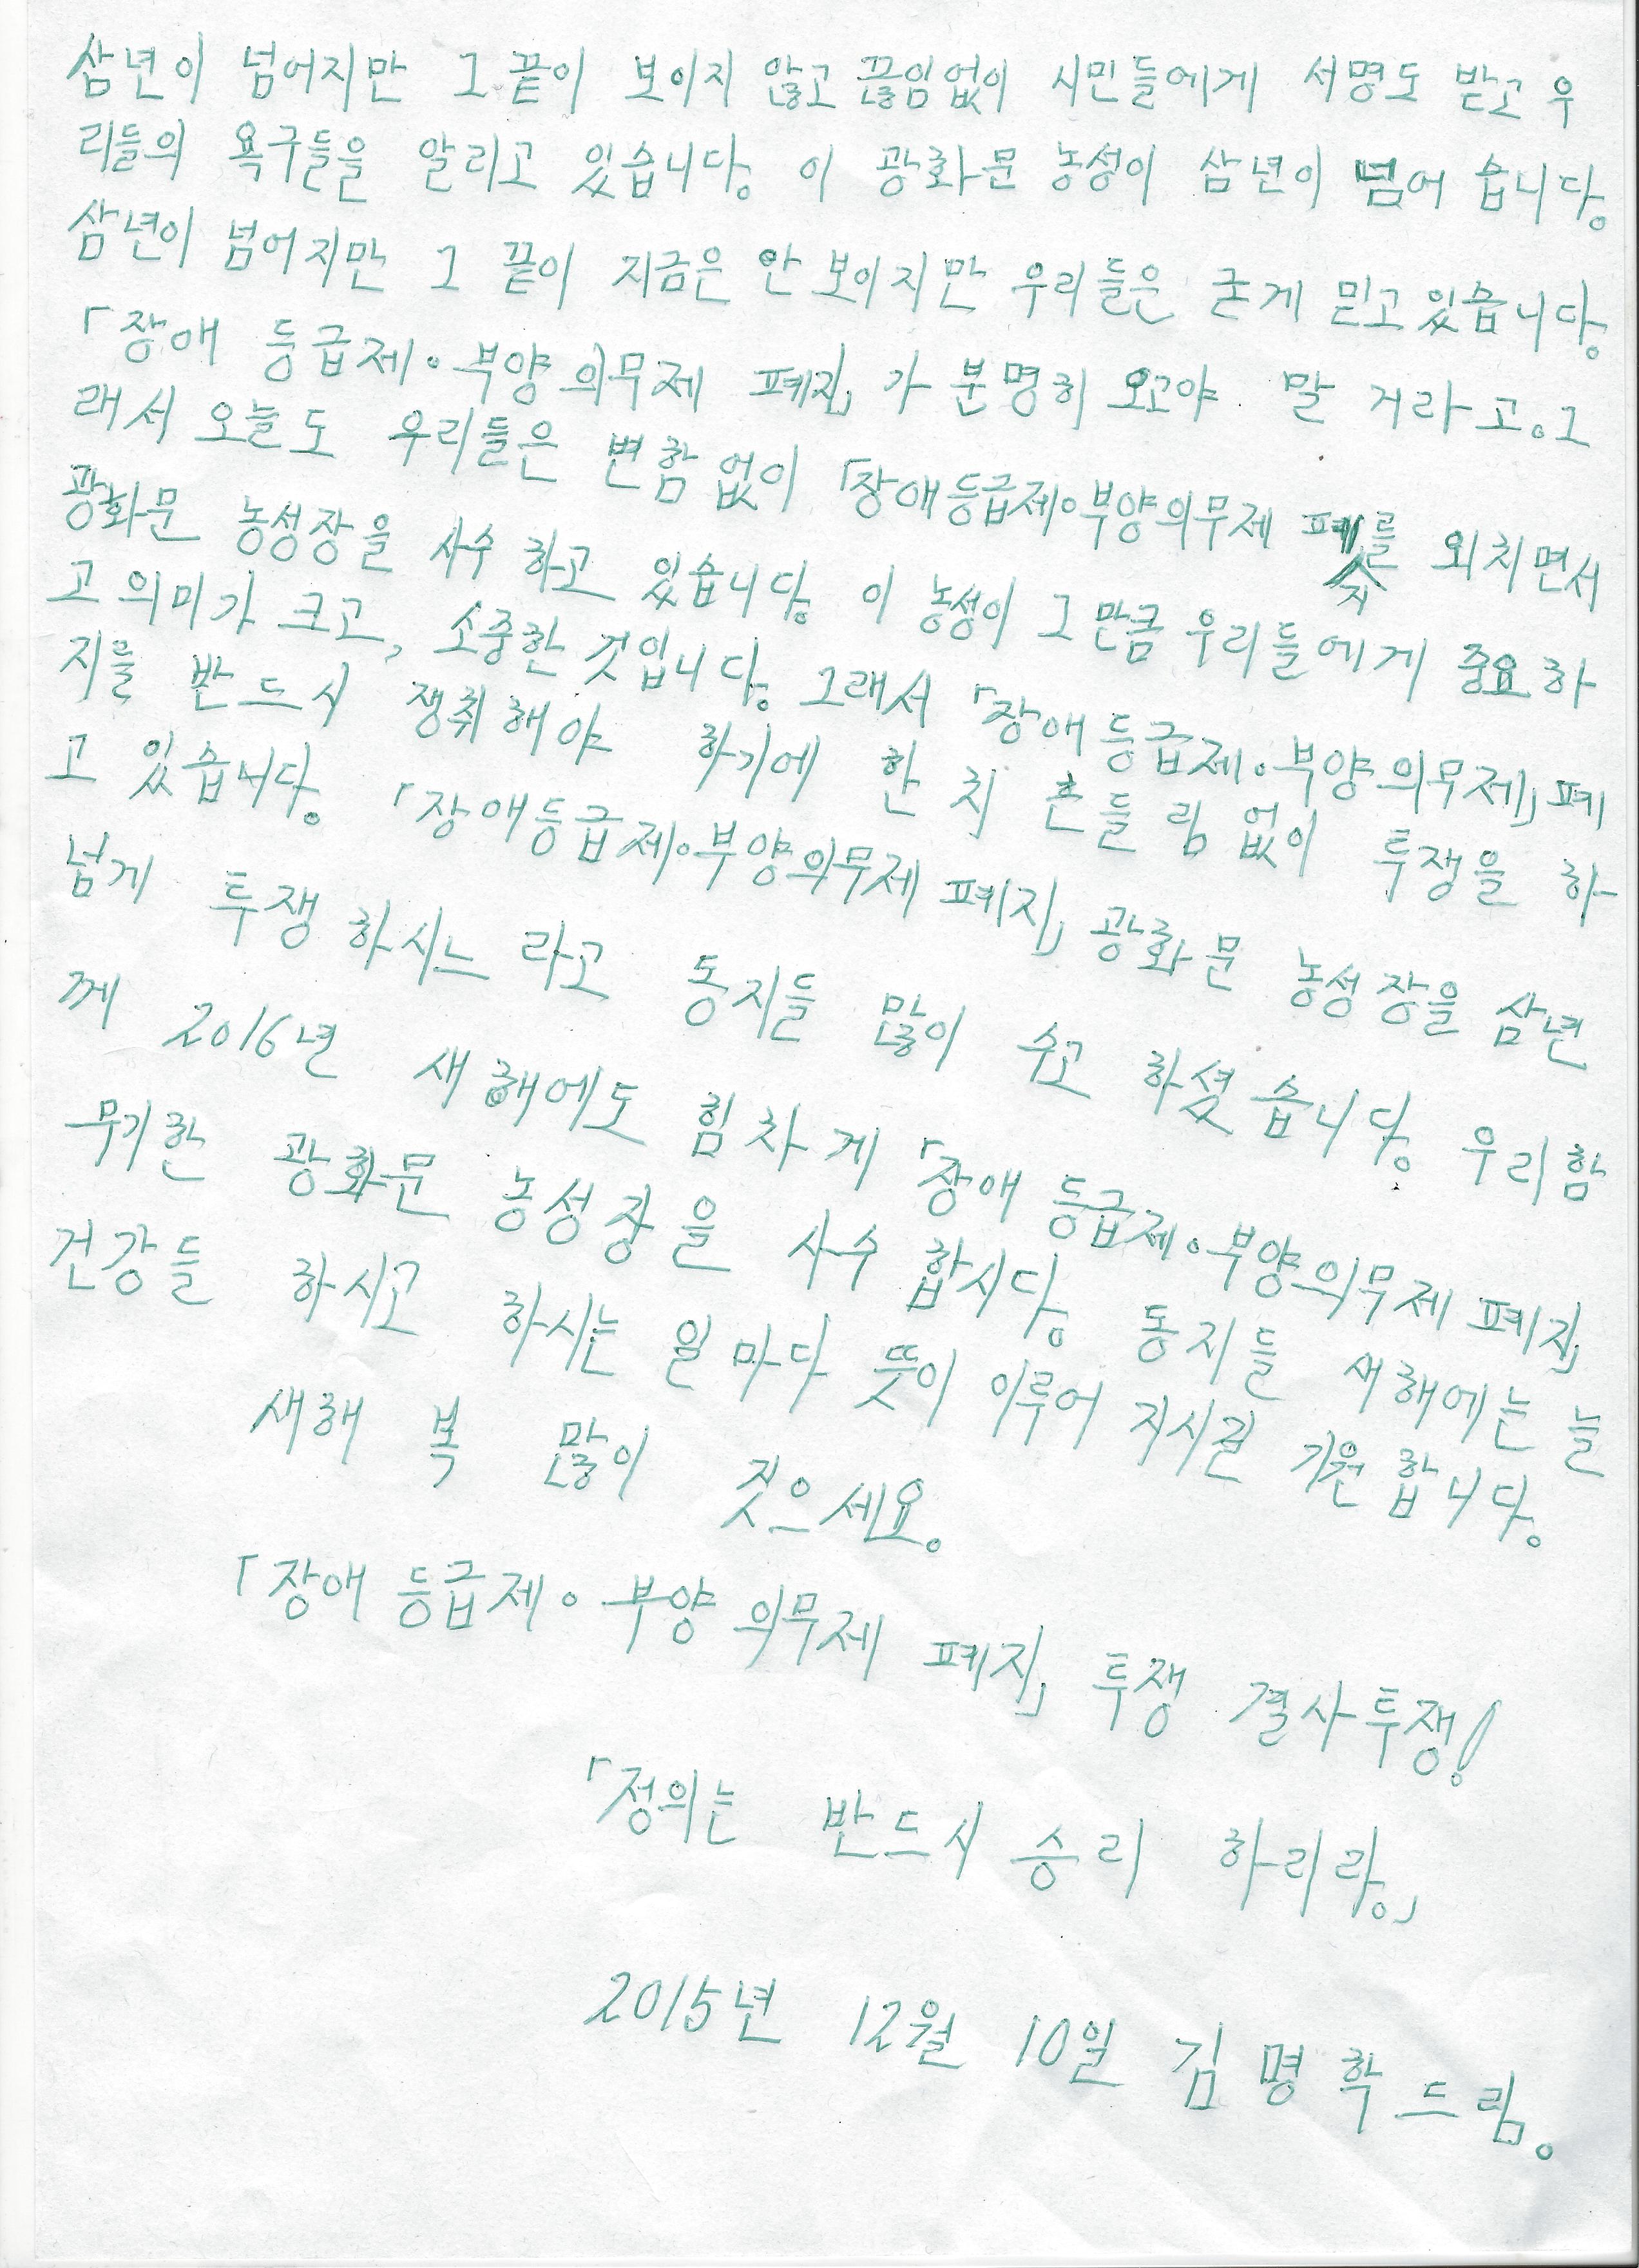 삼년이 넘어지만 그 끝이 보이지 않고 끊임없이 시민들에게 서명도 받고 우
리들의 욕구들을 알리고 있습니다. 이 광화문 농성이 삼년이 넘어 습니다.
삼년이 넘어지만 그 끝이 지금은 안 보이지만 우리들은 굳게 믿고 있습니다.
「장애 등급제·부양 의무제 폐지」가 분명히 오고야 말 거라고. 그
래서 오늘도 우리들은 변함 없이 「장애등급제·부양의무제 폐지를 외치면서
광화문 농성장을 사수 하고 있습니다. 이 농성이 그 만큼 우리들에게 중요하
고 의미가 크고, 소중한 것입니다. 그래서 「장애 등급제·부양의무제」폐
지를 반드시 쟁취해야 하기에 한 치 흔들림 없이 투쟁을 하
고 있습니다. 「장애등급제·부양의무제 폐지」 광화문 농성장을 삼년
넘게 투쟁 하시느라고 동지들 많이 수고 하셨습니다. 우리함
께 2016년 새해에도 힘차게 「장애 등급제·부양의무제 폐지」
무기한 광화문 농성장을 사수 합시다. 동지들 새해에는 늘
건강들 하시고 하시는 일마다 뜻이 이루어 지시길 기원 합니다.
새해 복 많이 짓으세요.
「장애 등급제·부양 의무제 폐지」 투쟁 결사투쟁!
「정의는 반드시 승리 하리라.」
2015년 12월 10일 김명학 드림.